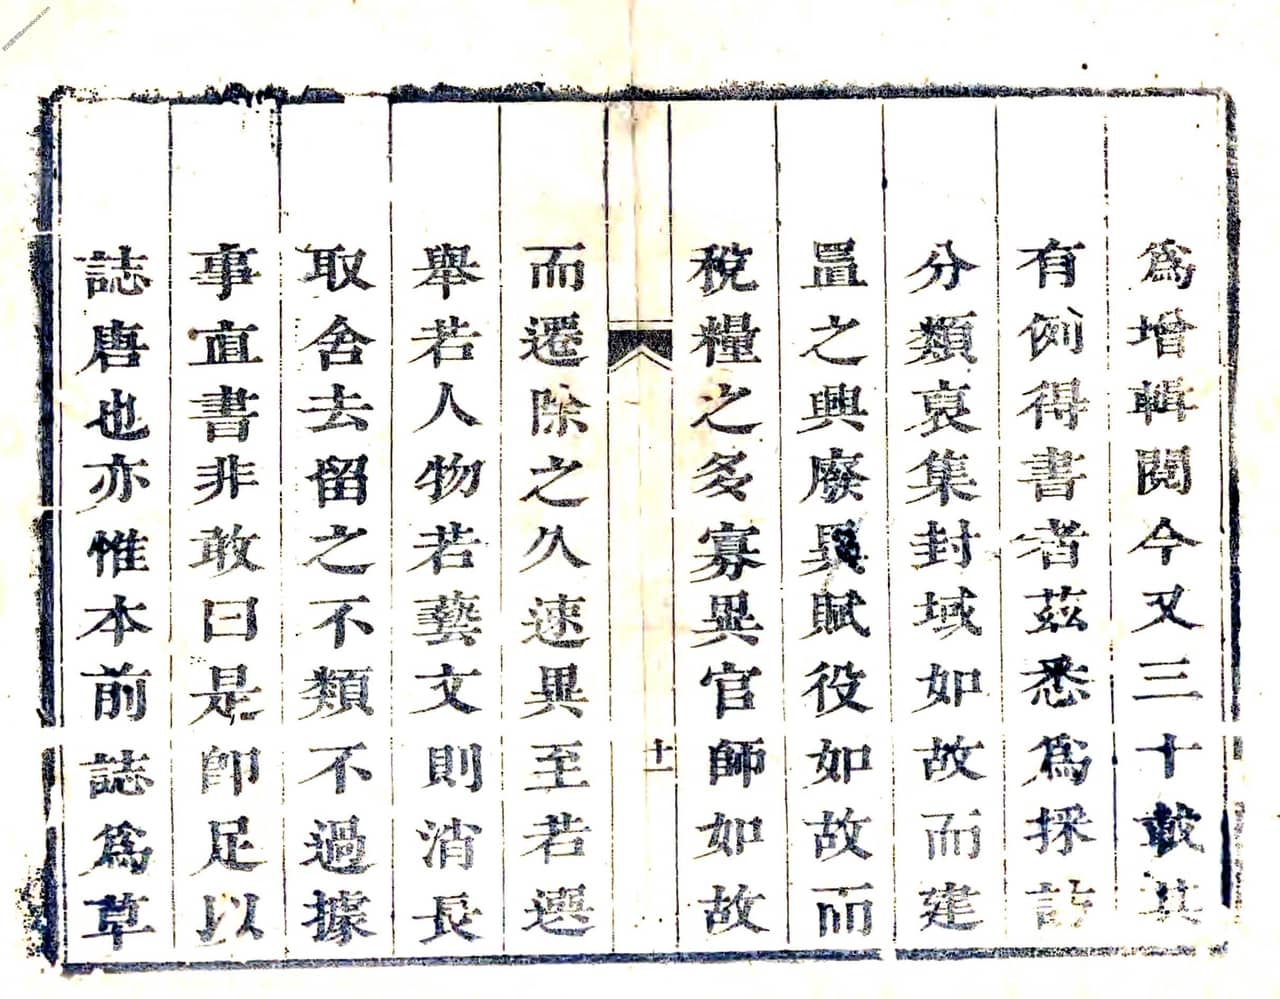 為增輯閱今又三十載其
有例得書者茲悉為採訪
分類裒集封域如故而建
置之興廢異賦役如故而
稅糧之多寡異官師如故
十一
而遷除之久速異至若選
舉若人物若藝文則消長
取舍去留之不類不過據
事直書非敢曰是即足以
誌唐也亦惟本前誌為草